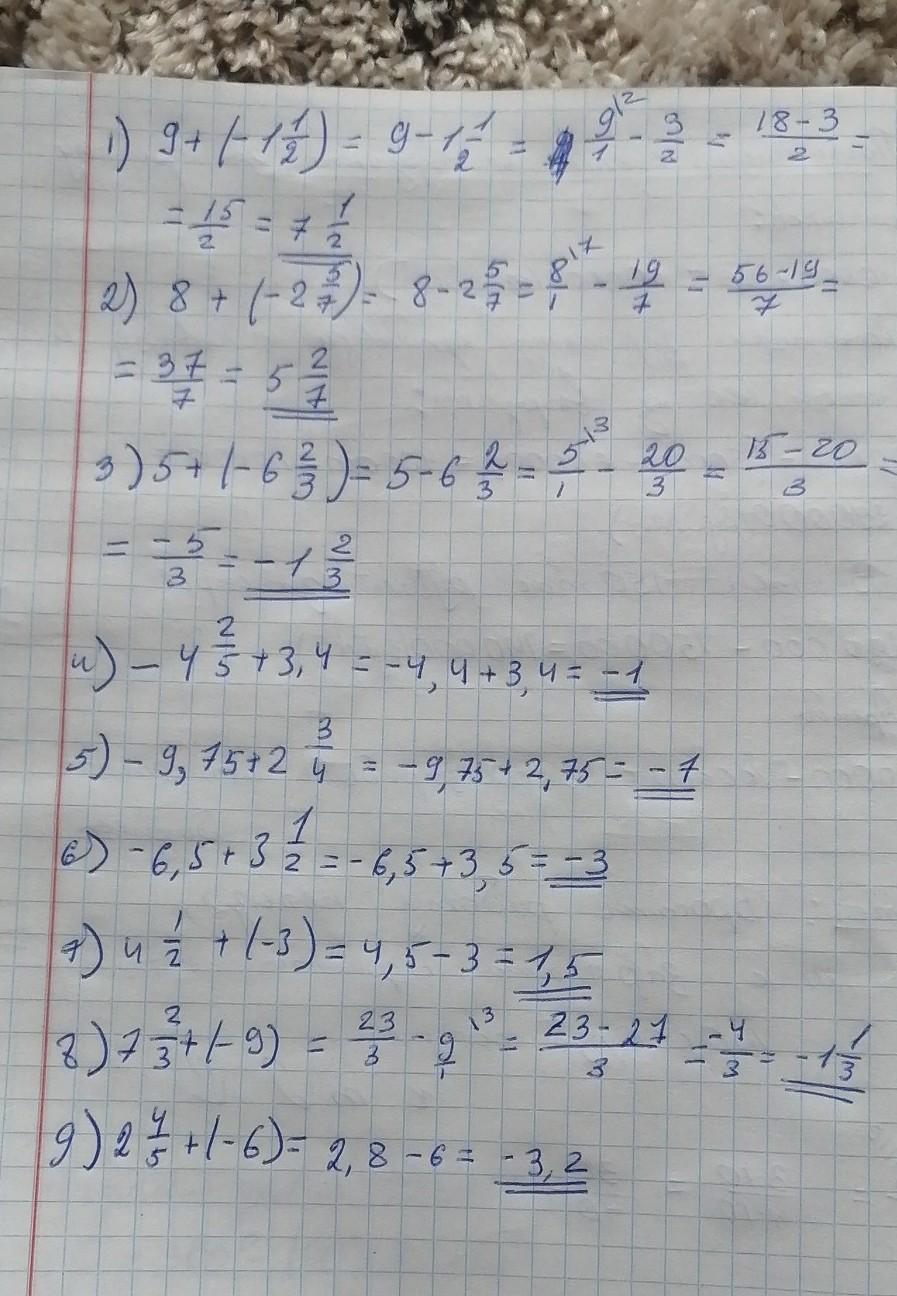 1) 9 + (-1 1/2) = 9 - 1 1/2 = 9/1 \2 - 3/2 = 18-3/2 =
= 15/2 = 7 1/2
2) 8 + (-2 5/7) = 8 - 2 5/7 = 8/1 \7 - 19/7 = 56-19/7 =
= 37/7 = 5 2/7
3) 5 + (-6 2/3) = 5 - 6 2/3 = 5/1 \3 - 20/3 = 15-20/3 =
= -5/3 = -1 2/3
4) - 4 2/5 + 3,4 = -4,4 + 3,4 = -1
5) - 9,75 + 2 3/4 = -9,75 + 2,75 = -7
6) -6,5 + 3 1/2 = -6,5 + 3,5 = -3
7) 4 1/2 + (-3) = 4,5 - 3 = 1,5
8) 7 2/3 + (-9) = 23/3 - 9/1 \3 = 23-27/3 = -4/3 = -1 1/3
9) 2 4/5 + (-6) = 2,8 - 6 = -3,2